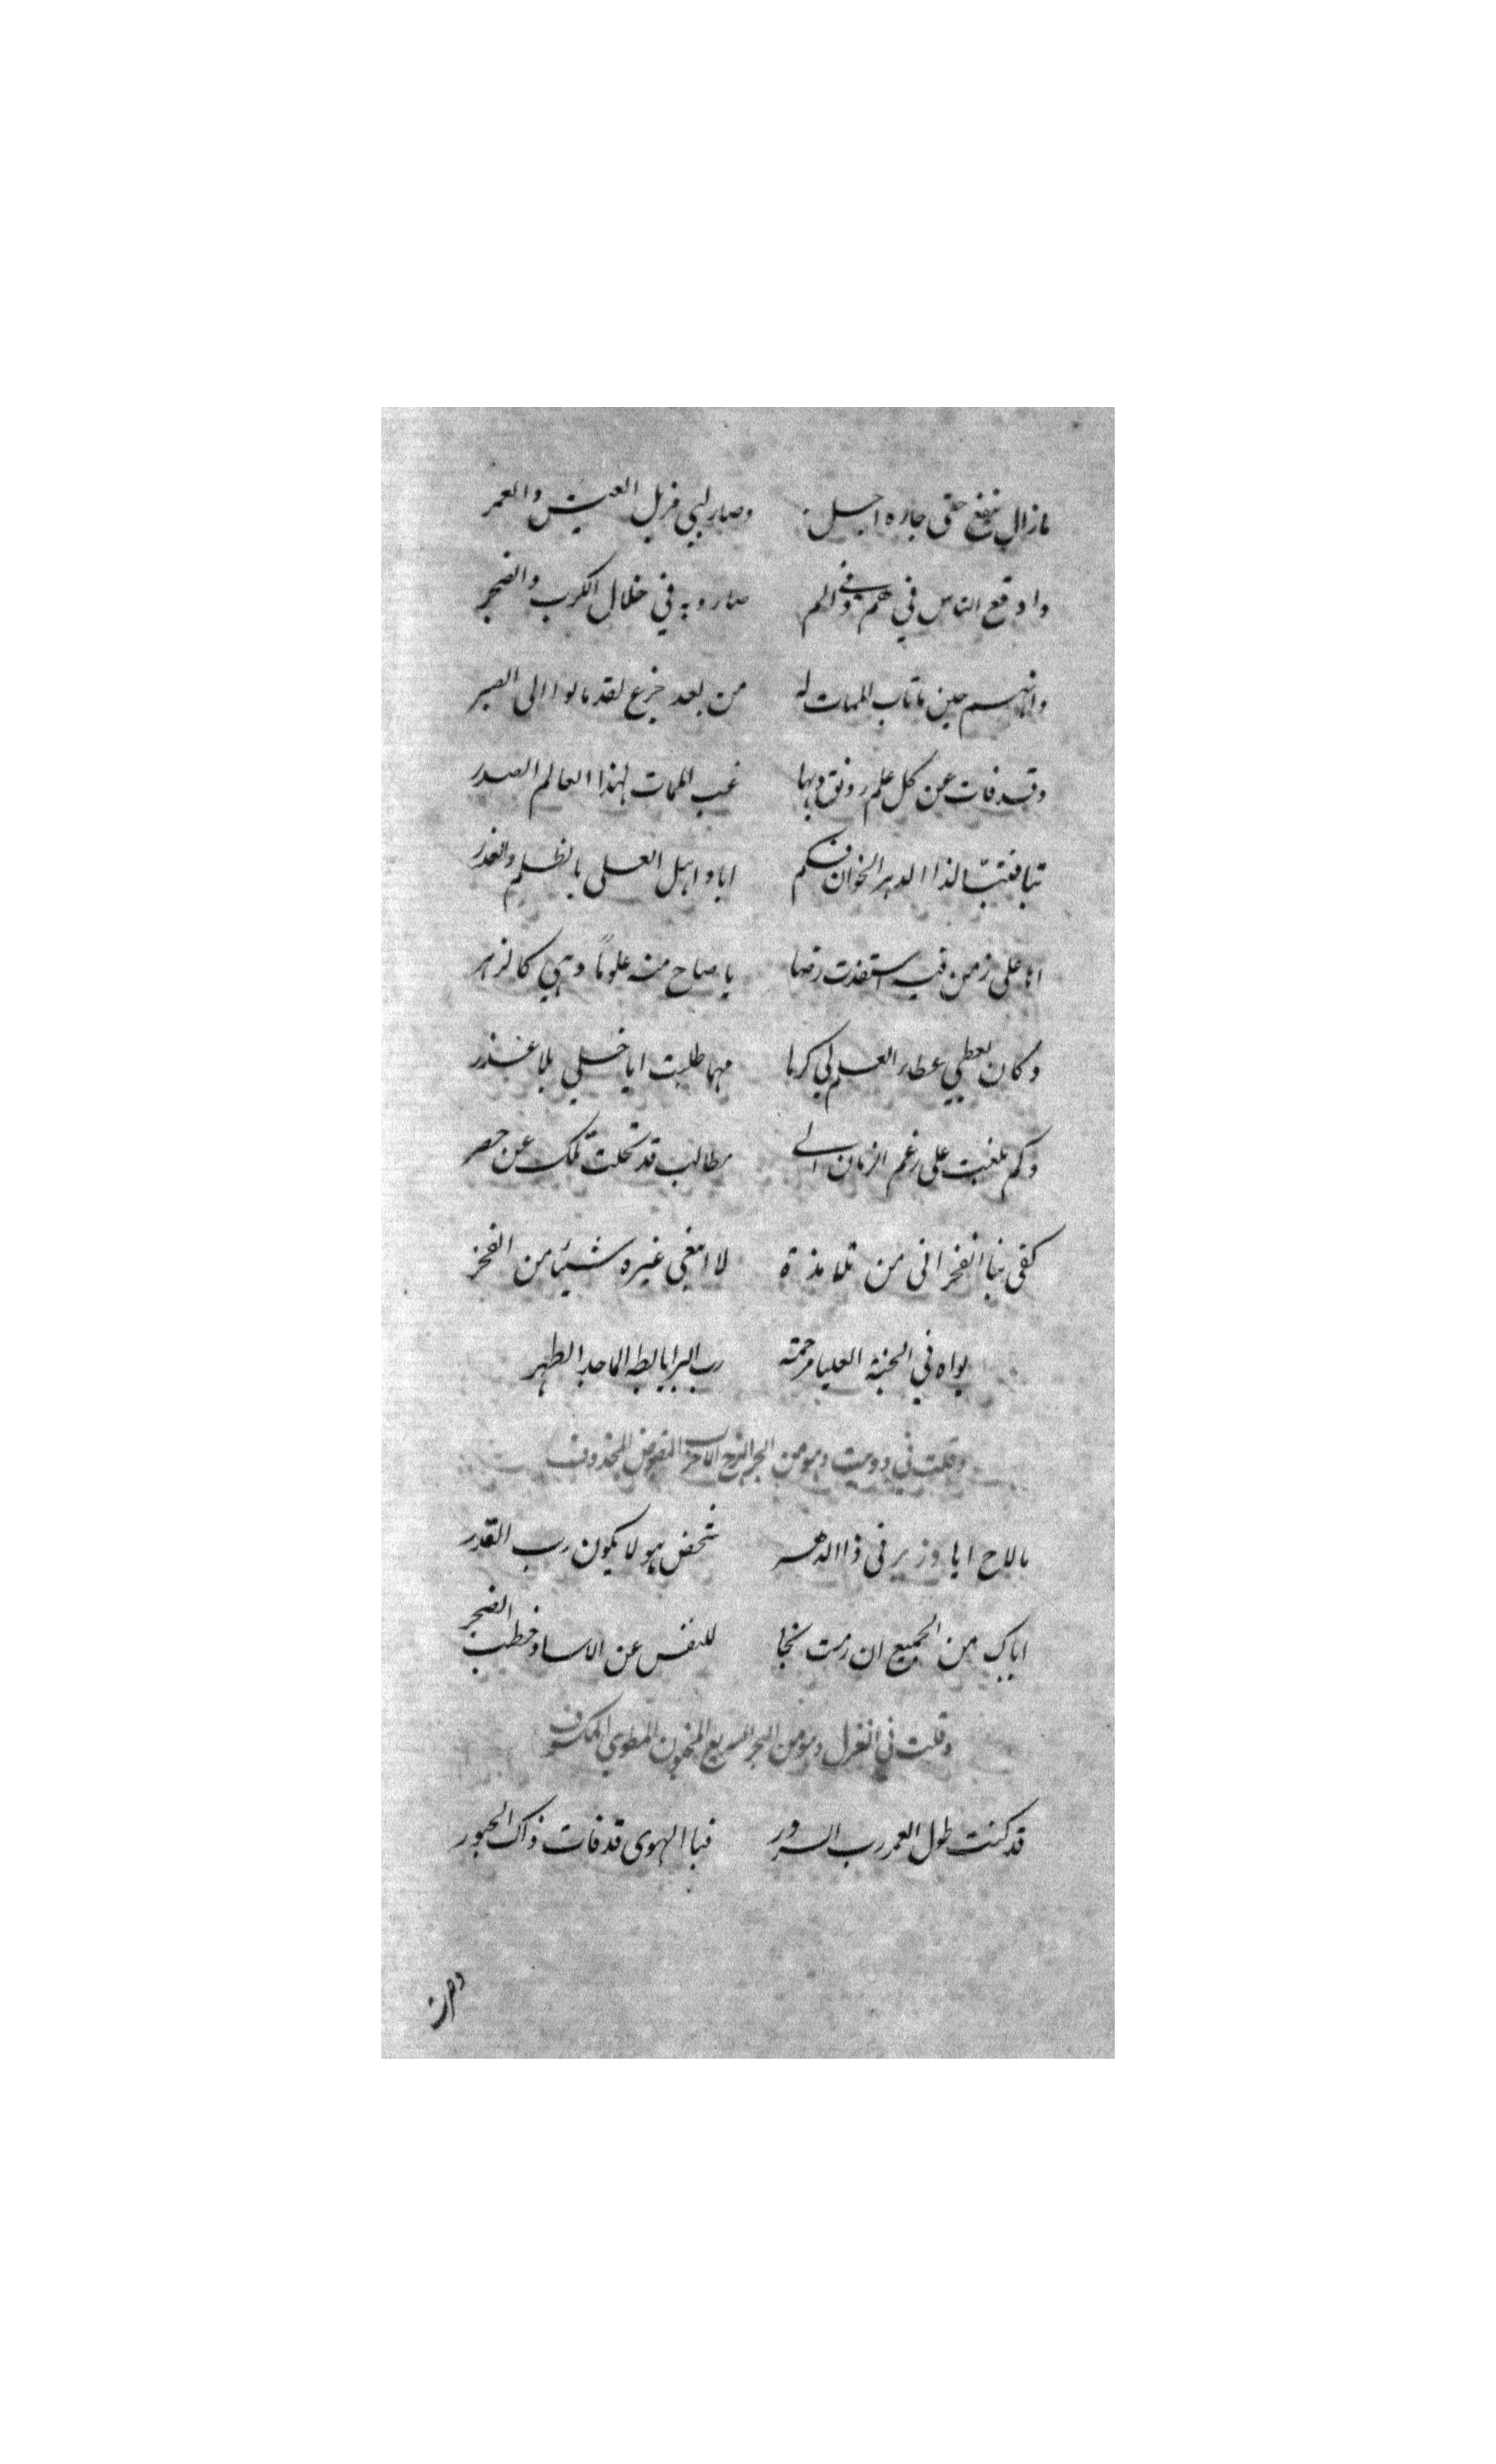 مازال ينفع حتى جاره اجل وصار لبي مزيل العيش والعمر
واوقع الناس في هم وفي الم صاروا به في خلال الكرب والضجر
وانهم حين ماتاب الممات له من بعد جزع لقد مالوا الى الصبر
وقد فات عن كل علم رونق وبها غب الممات لهذا العالم الصدر
تبا فتبّا لذا الدهر الخوان فكم اباد اهل العلى بالظلم والغدر
اها على زمن فيه استفذت رضا يا صاح منه علومًا وهي كالزهر
وكان يعطي عطاء العلم لي كرما مهما طلبت ايا خلي بلا عذر
وكم بلغت على رغم الزمان الى مطالب قد تحلت تلك عن حصر
كفى بنا الفخر انى من تلامذة لا ابتغي غيره شيئا من الفخر
بواه في الجنة العليا مرحمته رب البرايا بطه الماجد الطهر
وقلت في دوبيت وهو من البحر الهزج الاخرب المقبوض المحذوف
مالاح ايا وزير فى ذا الدهر شخص هو لا يكون رب القدر
اياك من الجميع ان رمت نجا للنفس عن الاسا وخطب الضجر
وقلت في الغزل وهو من البحر السريع المخبون المطوي المكسوف
قد كنت طول العمر رب السرور فبا الهوى قد فات ذاك الحبور